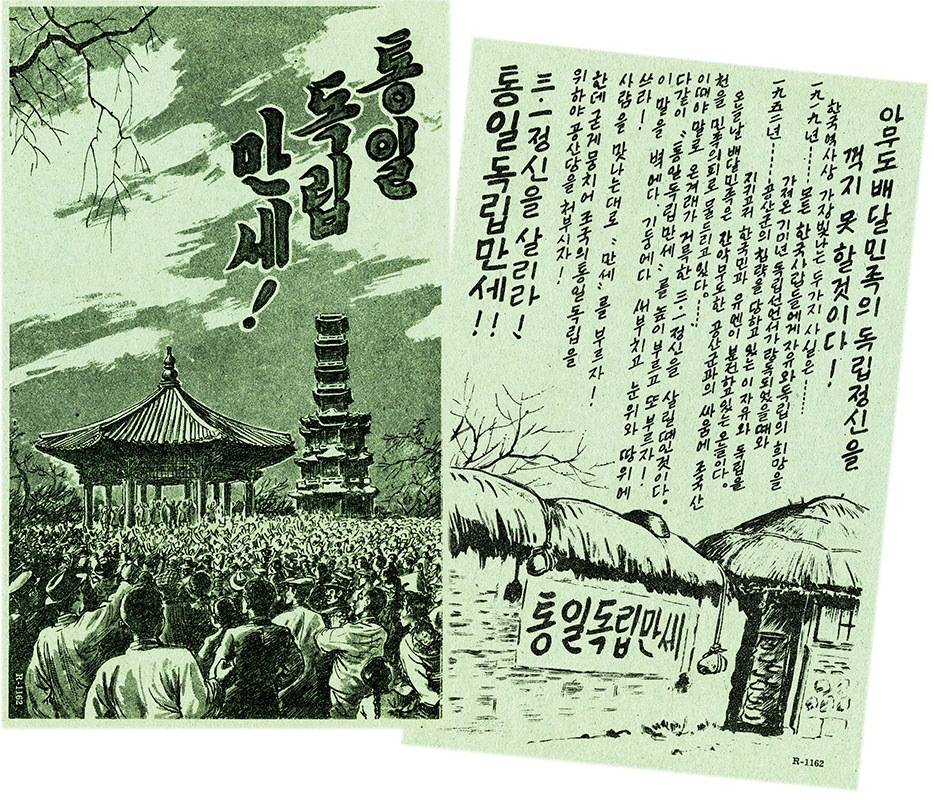 통일
독립
만세!
R-1162
아무도배달민족의독립정신을
꺽지 못할것이다!
한국역사상 가장빛나는 두가지 사실은……
一九一九년…… 모든 한국사람들에게 자유와독립의 희망을
가져온 기미년 독립선언서가랑독되었을때와
一九五二년…… 공산군의 침략을 당하고 있는 이자유와 독립을
지키고저 한국민과 유엔이 분전하고있는 오늘이다.
오늘날 배달민족은 잔악무도한 공산군과의 싸움에 조국산
천을 민족의피로 물드리고 있다……
이때야 말로 온겨래가 거룩한 三·一정신을 살릴때인것이다.
다같이 "통일독립만세"를 높이부르고 또부르자!
이 말을 벽에다 기둥에다 새부치고 눈위와 땅위에
쓰라!
사람을 맛나는대로 "만세"를 부르자!
한데 굳게뭉치어 조국의 통일독립을
위하야 공산당을 처부시자!
三·一정신을 살리라!
통일독립만세!!
통일독립만세
R-1162